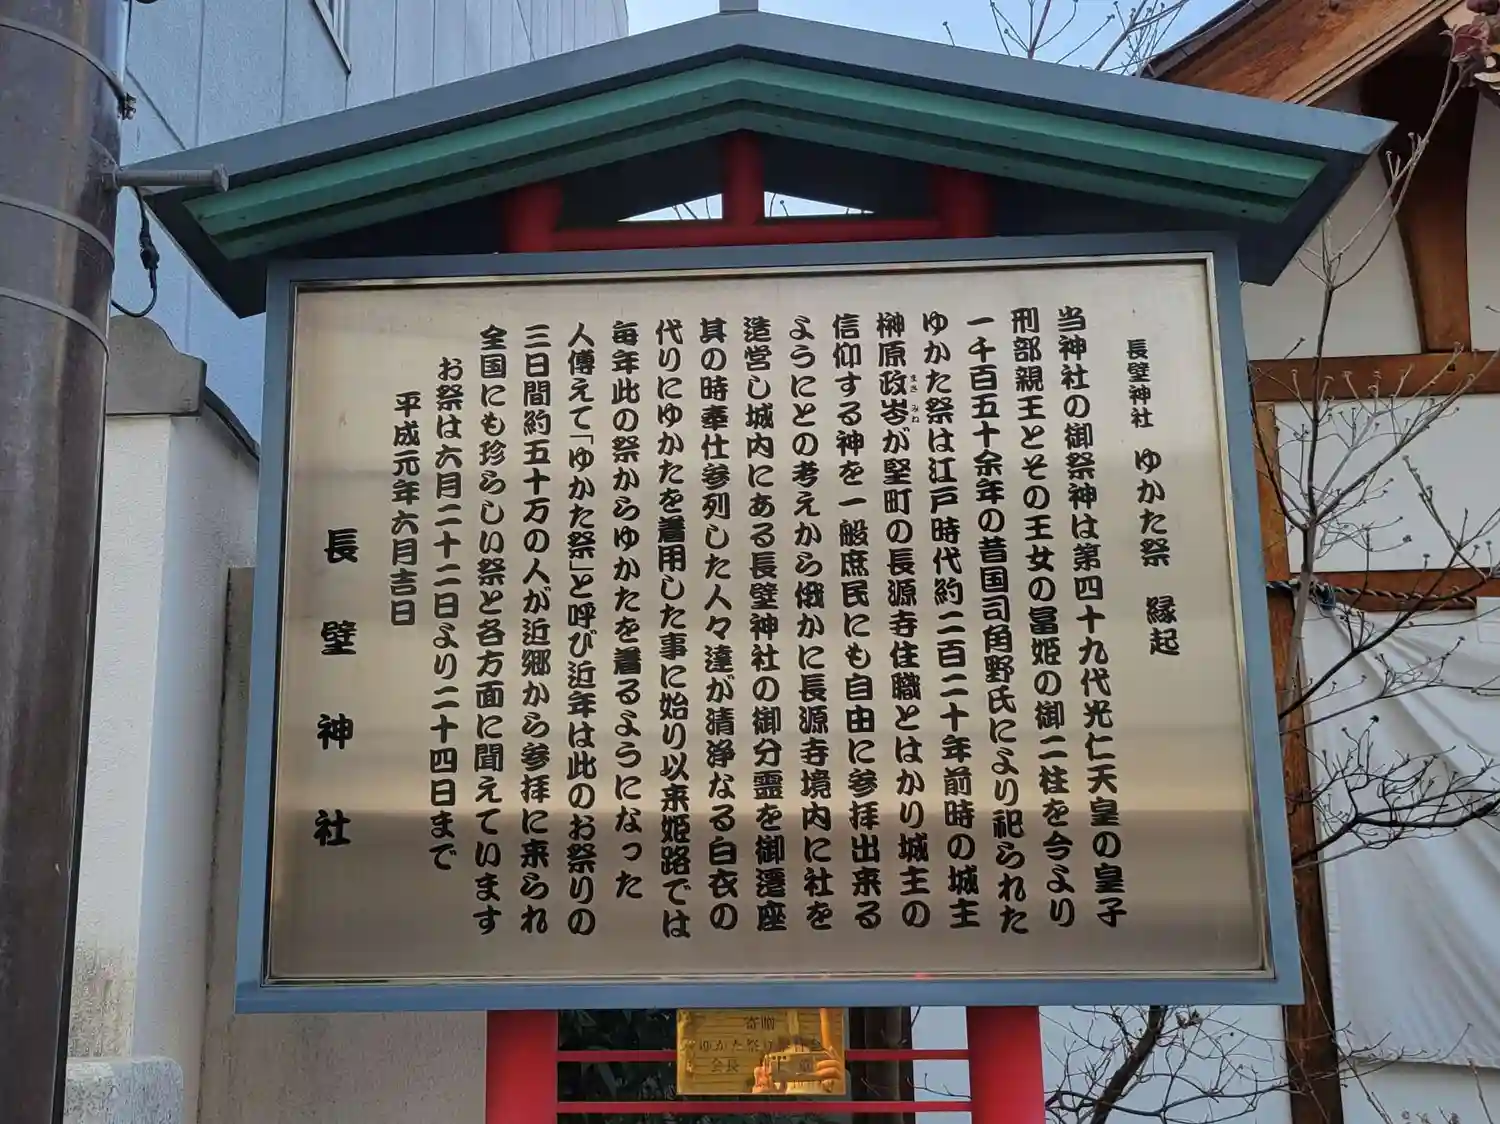 長壁神社 ゆかた祭 縁起
当神社の御祭神は第四十九代光仁天皇の皇子
刑部親王とその王女の冨姫の御二柱を今より
一千百五十余年の昔国司角野氏により祀られた
ゆかた祭は江戸時代約二百二十年前時の城主
榊原政岑が堅町の長源寺住職とはかり城主の
まさ みね
信仰する神を一般庶民にも自由に参拝出来る
ようにとの考えから俄かに長源寺境内に社を
造営し城内にある長壁神社の御分霊を御遷座
其の時奉仕参列した人々達が清浄なる白衣の
代りにゆかたを着用した事に始り以来姫路では
毎年此の祭からゆかたを着るようになった
人傅えて「ゆかた祭」と呼び近年は此のお祭りの
三日間約五十万の人が近郷から参拝に来られ
全国にも珍らしい祭と各方面に聞えています
お祭は六月二十二日より二十四日まで
平成元年六月吉日
長壁神社
寄贈
ゆかた祭り
会長